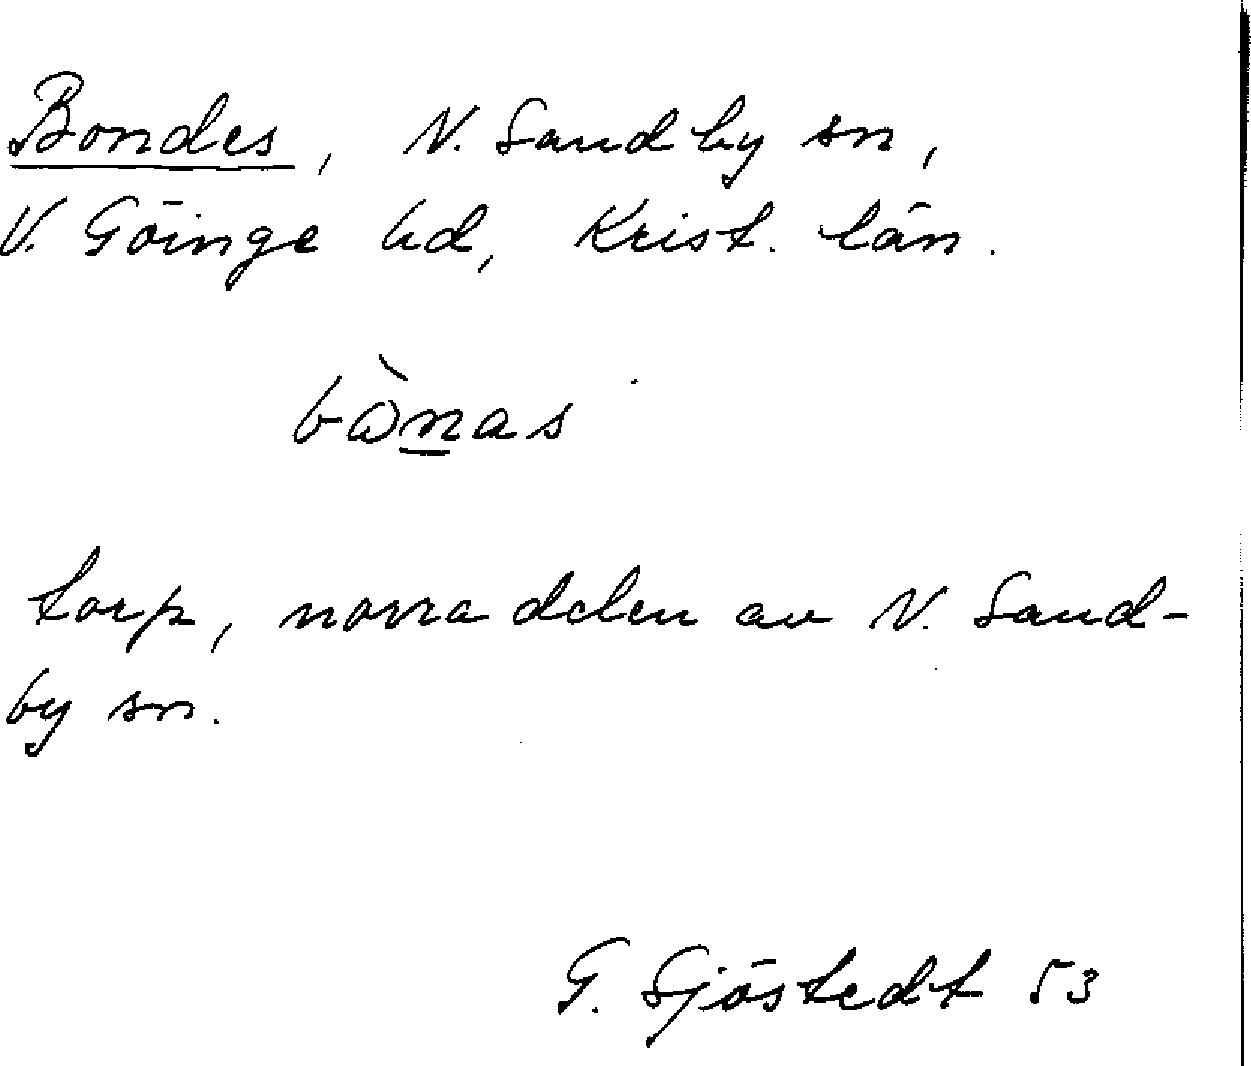 Bondes, N. Sandby sn,
V. Göinge hd, Krist. län.
bånas
torp, norra delen av N. Sand-
by sn.
G. Sjöstedt 53